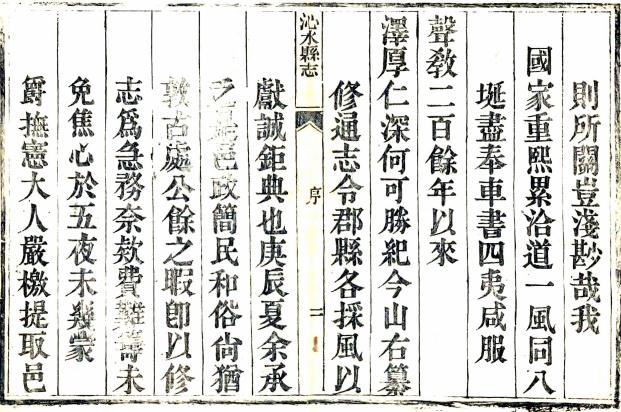 則所關豈淺尠哉我
國家重熙累洽道一風同八
埏盡奉車書四夷咸服
聲敎二百餘年以來
澤厚仁深何可勝紀今山右纂
修通志令郡縣各採風以
沁水縣志
序
二
獻誠鉅典也庚辰夏余承
乏是邑政簡民和俗尙猶
敦古處公餘之暇卽以修
志爲急務奈欸費難籌未
免焦心於五夜未幾蒙
爵撫憲大人嚴檄提取邑